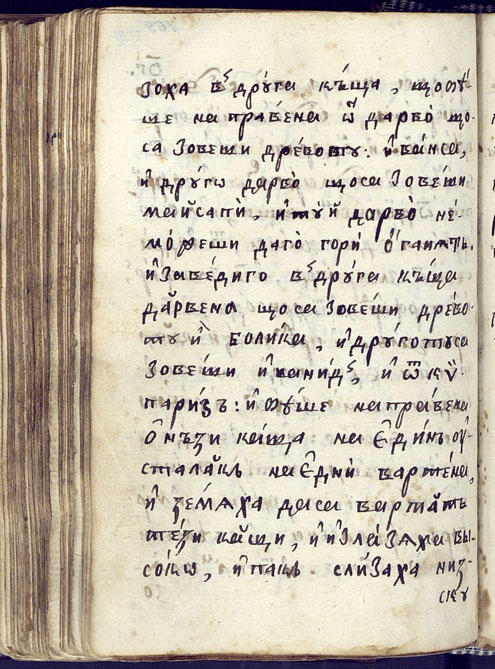 зоха вⸯ дрꙋ́га кѣ́ща, що тꙋ̀
ше на праве́на ѿ дарво̀ що-
са зове́ши дре́вовтꙋ: и҆ва́нса,
и҆ дрꙋ́гѡ дарво̀ щоса зове́ши
майсапѝ, и҆ тꙋ́й дарво̀ не-
мо́жеши даго̀ горѝ ѻ҆́ганять,
и҆ заве́диго вⸯ дрꙋ́га кѣ́ща
да́рвена щоса зове́ши дре́во-
тꙋ и҆̀ боли́ка, и҆ дрꙋ́готуса
зове́ши и҆́ванидⸯ, и҆ ѿ кѷ-
пари́зъ: и҆ тꙋ́ше напра́вена
ѻ҆на́ѕи ка́ща на є҆ди́нъ ꙋ҆-
сталакь на є҆днѝ варте́на,
и҆ ꙁе́мѧха даса варта́тъ
те́ѕи ка́щи, и҆ и҆зла́зѧха вы-
со́кѡ, и҆ пакь сли́заха ниꙁ-
скꙋ